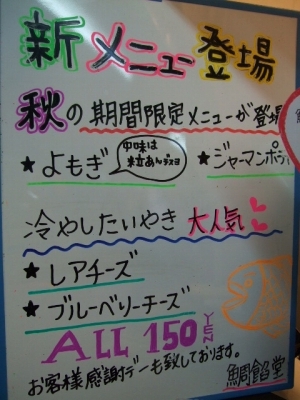 新メニュー登場
秋の期間限定メニューが登場
★よもぎ
中味は
粒あんデスヨ
★ジャーマンポテ
冷やしたいやき 大人気
★レアチーズ
★ブルーベリーチーズ
ALL 150 YEN
お客様感謝デーも致しております。
鯛餡堂